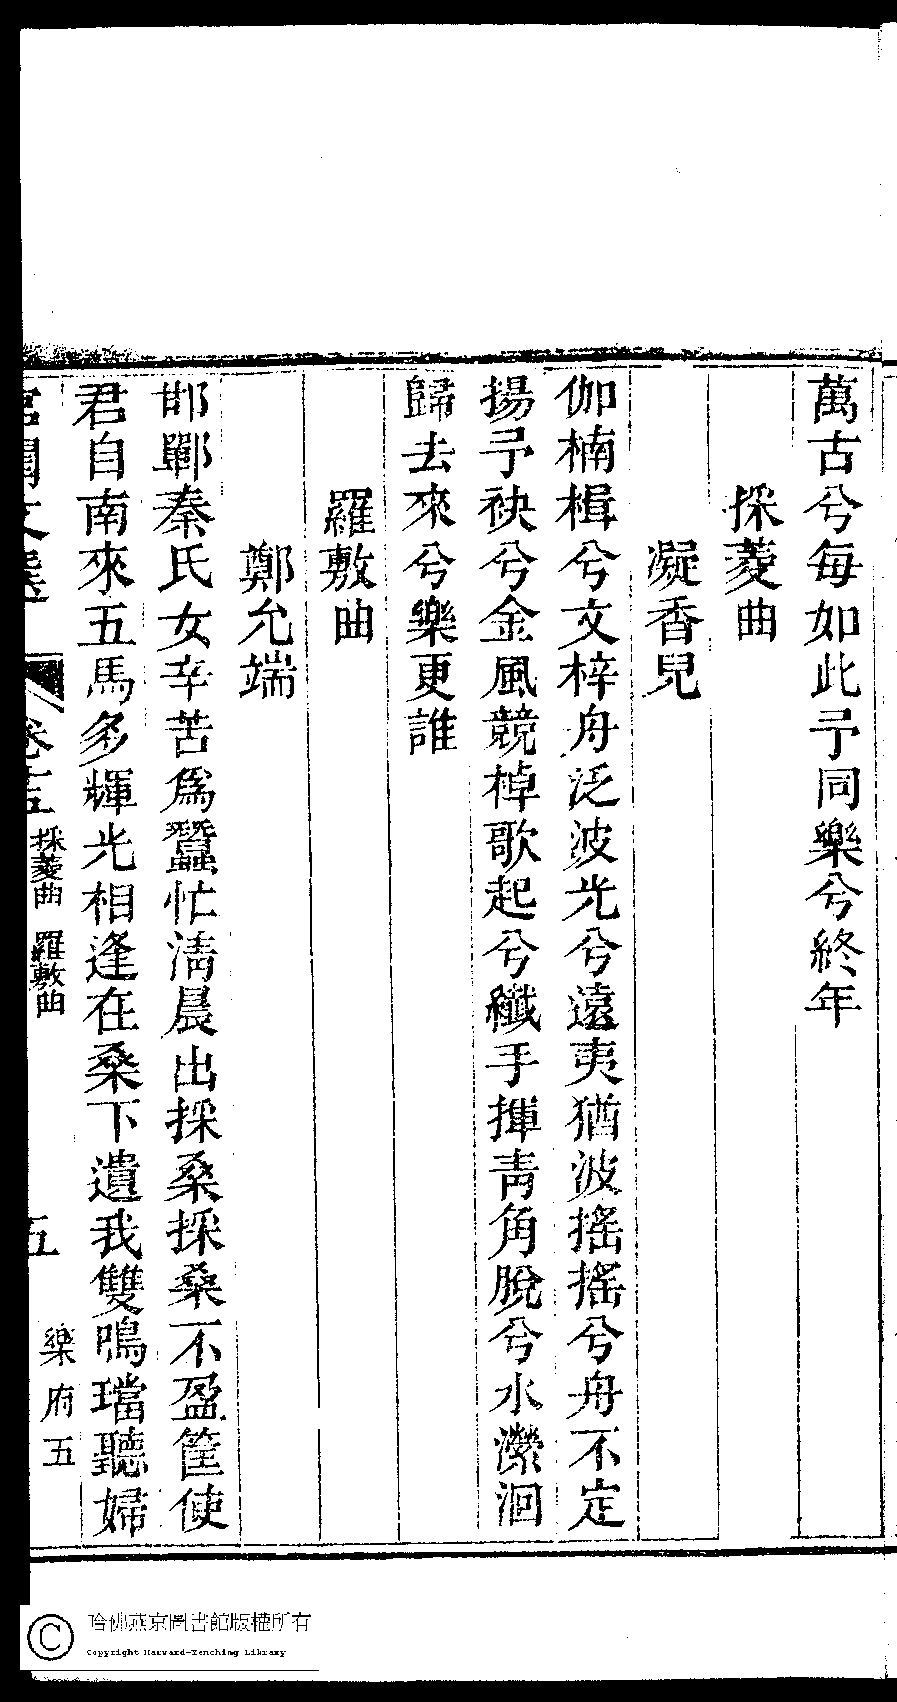 萬古兮每如此予同樂兮終年
採菱曲
凝香兒
伽楠楫兮文梓舟泛波光兮遠夷猶波搖搖兮舟不定
揚予袂兮金風競棹歌起兮纖手揮青角脫兮水瀠洄
歸去來兮樂更誰
羅敷曲
鄭允端
邯鄲秦氏女辛苦爲蠶忙淸晨出採桑採桑不盈筐使
君自南來五馬多輝光相逢在桑下遺我雙鳴璫聽婦
宮閨文選
卷十五
採菱曲 羅敷曲
五
樂府五
哈佛燕京圖書館版權所有
Copyright Harvard-Yenching Library